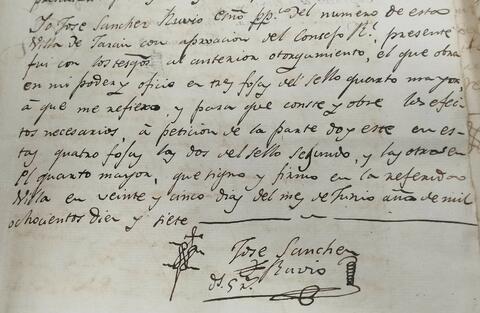 Yo Jose Sanchez Ruvio Esno pp.co del numero de esta
Villa de con aprovacion del Consejo Rl., presente
fui con los tesgos al anterior otorgamiento, el que obra
en mi poder y oficio en tres fojas del sello quarto mayor,
á que me refiero, y para qe conste y obre los efec
tos necesarios, á peticion de la parte doy este en es
tas quatro fojas las dos del sello segundo, y las otras en
el quarto mayor, que signo y firmo en la referida
Villa en veinte y cinco dias del mes de Junio año de mil
ochocientos diez y siete
Jose Sanchez
Ruvio